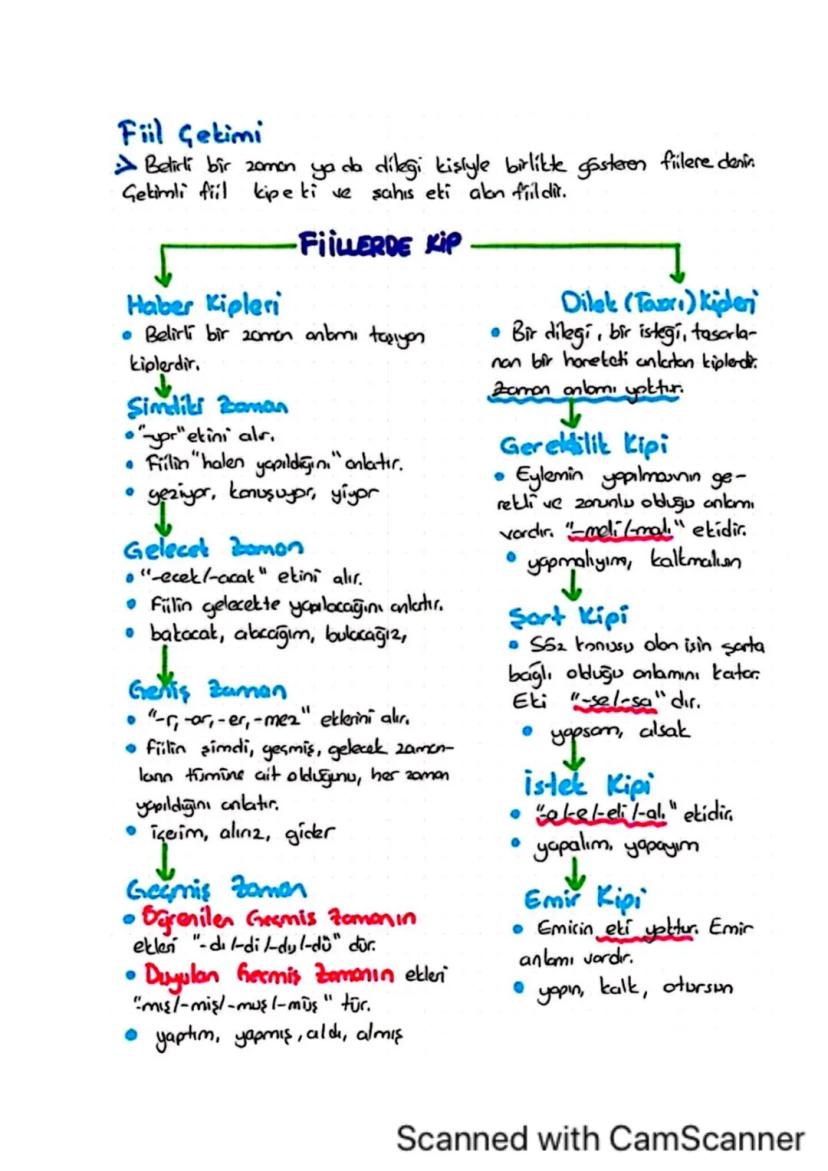 Fiil Çekimi
Belirli bir zaman ya da dileği kişiyle birlikte gösteren fiilere denir.
Çekimli fiil kip eki ve şahıs eki alan fiildir.
FİİLLERDE KİP
Haber Kipleri
• Belirli bir zaman anlamı taşıyan
kiplerdir.
Şimdiki Zaman
• "-yor" ekini alır.
• Fiilin "halen yapıldığını" anlatır.
• geziyor, konuşuyor, yiyor
Gelecek Zaman
• "-ecek/-acak" ekini alır.
• Fiilin gelecekte yapılacağını anlatır.
• bakacak, alacağım, bulacağız,
Geniş Zaman
• "-r, -ar, -er, -mez" eklerini alır.
• Fiilin şimdi, geçmiş, gelecek zaman-
ların tümüne ait olduğunu, her zaman
yapıldığını anlatır.
• içerim, alırız, gider
Geçmiş Zaman
• Öğrenilen Geçmiş Zamanın
ekleri "-dı/-di/-du/-dü" dür.
• Duyulan Geçmiş Zamanın ekleri
"-mış/-miş/-muş/-müş" tür.
• yaptım, yapmış, aldı, almış
Dilek (Tasarı) Kipleri
• Bir dileği, bir isteği, tasarla-
nan bir hareketi anlatan kiplerdir.
Zaman anlamı yoktur.
Gereklilik Kipi
• Eylemin yapılmasının ge-
rekli ve zorunlu olduğu anlamı
vardır. "-meli/-malı" ekidir.
• yapmalıyım, kalkmalısın
Şart Kipi
• Söz konusu olan işin şarta
bağlı olduğu anlamını katar.
Eki "-se/-sa" dır.
• yapsam, alsak
İstek Kipi
• "-a/-e/-eli/-alı" ekidir.
• yapalım, yapayım
Emir Kipi
• Emirin eki yoktur. Emir
anlamı vardır.
• yapın, kalk, otursun
Scanned with CamScanner